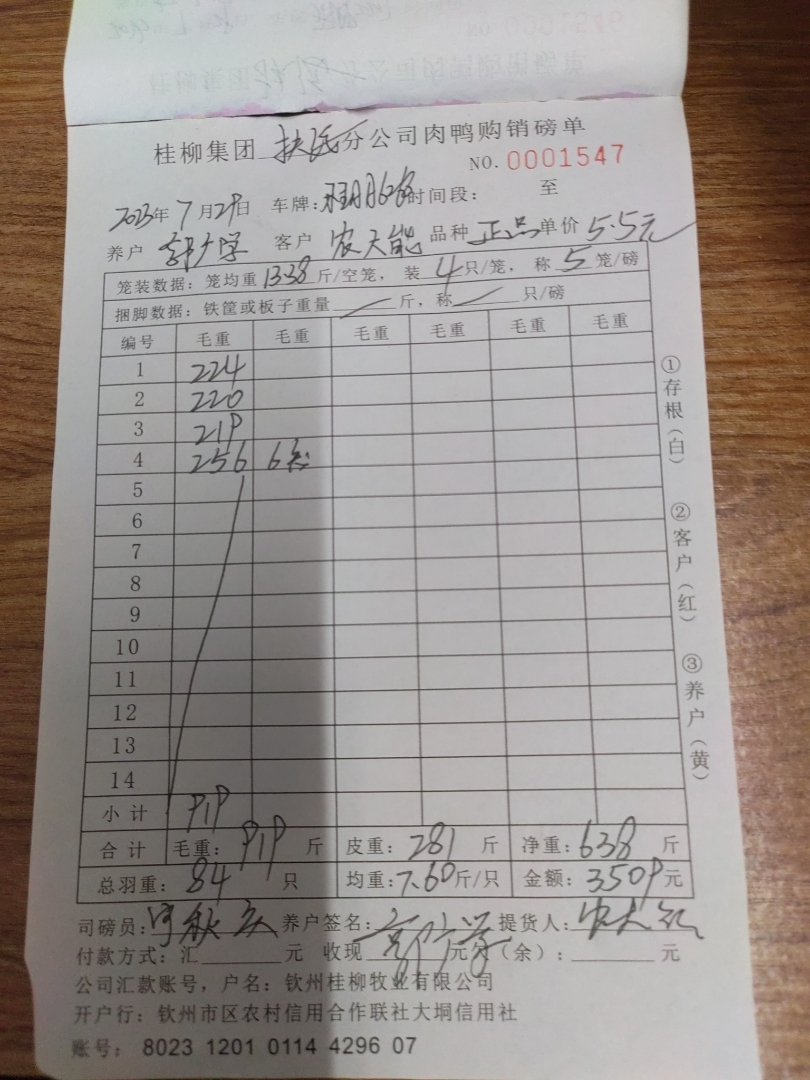 桂柳集团 分公司肉鸭购销磅单
NO. 0001547
2023年7月29日 车牌: 时间段: 至
养户 客户 农天能 品种 正品 单价 5.5元
笼装数据: 笼均重 13.38 斤/空笼, 装 4 只/笼, 称 5 笼/磅
捆脚数据: 铁筐或板子重量 斤, 称 只/磅
编号 毛重 毛重 毛重 毛重 毛重 毛重
1 224
2 220
3 219
4 256 6
5
6
7
8
9
10
11
12
13
14
小计 919
合计 毛重: 919 斤 皮重: 281 斤 净重: 638 斤
总羽重: 84 只 均重: 7.60 斤/只 金额: 3509 元
司磅员: 养户签名: 提货人:
付款方式: 汇 元 收现 元 (余): 元
公司汇款账号, 户名: 钦州桂柳牧业有限公司
开户行: 钦州市区农村信用合作联社大垌信用社
账号: 8023 1201 0114 4296 07
①存根(白)
②客户(红)
③养户(黄)